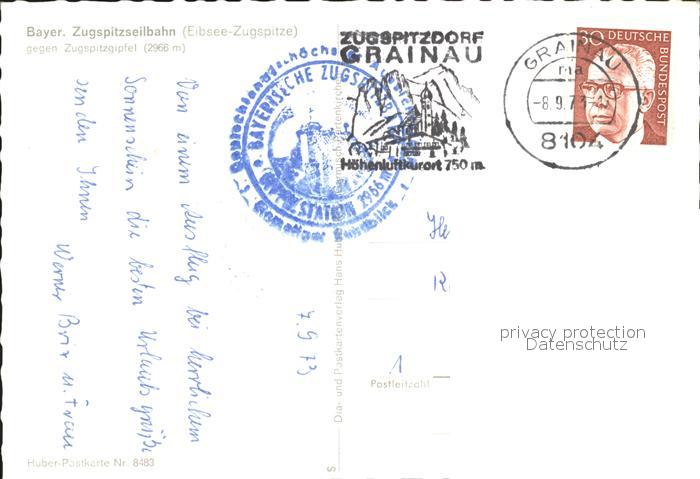 Bayer. Zugspitzseilbahn (Eibsee-Zugspitze)
gegen Zugspitzgipfel (2966 m)
Von einem Ausflug bei herrlichem
Sonnenschein die besten Urlaubsgrüße
senden Ihnen
Werner Brix u. Frau
7.9.73
Huber-Postkarte Nr. 8483
BAYERISCHE ZUGSP
GIPFELSTATION 2966 m
Deutschlands höchste
Dia- und Postkartenverlag Hans Hub
artenkirchen
ZUGSPITZDORF
GRAINAU
Höhenluftkurort 750 m.
GRAINAU
ma
-8.9.73
8104
30 DEUTSCHE
BUNDESPOST
He
R
1
Postleitzahl
privacy protection
Datenschutz